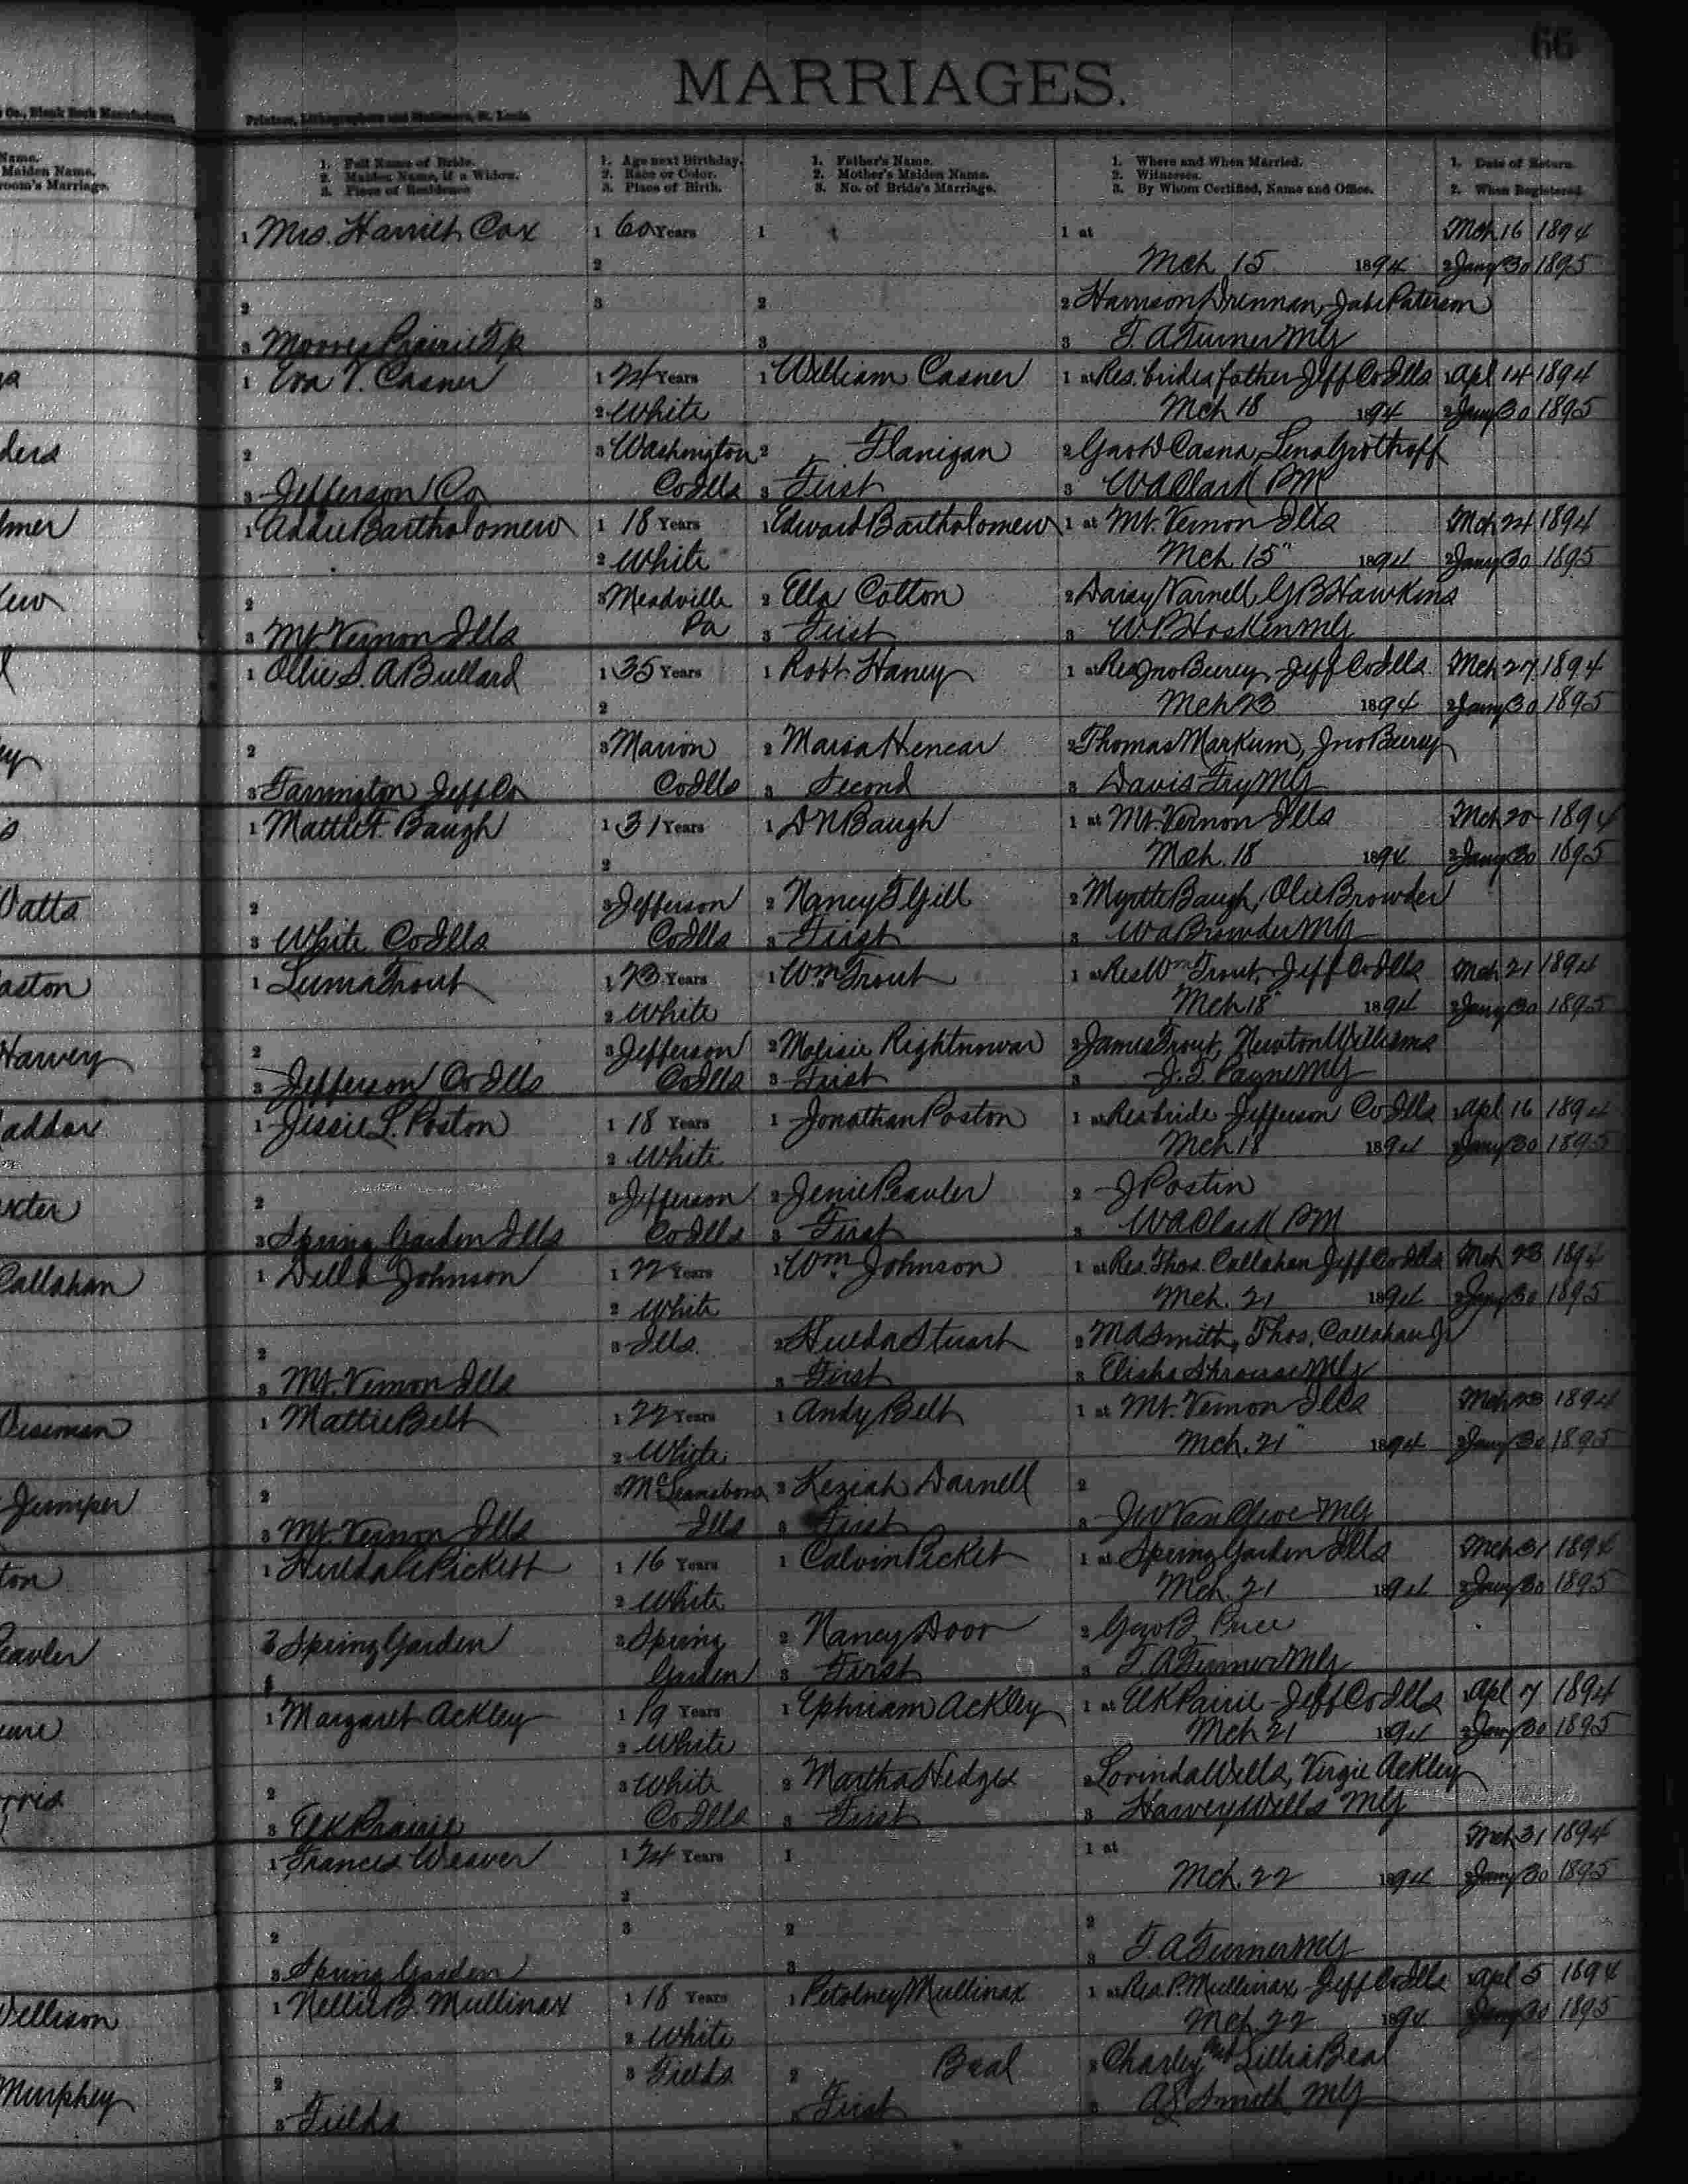 66
MARRIAGES.
Co., Blank Book Manufacturers,
Printers, Lithographers and Stationers, St. Louis.
Name.
Maiden Name.
room's Marriage.
1. Full Name of Bride.
2. Maiden Name, if a Widow.
3. Place of Residence
1. Age next Birthday.
2. Race or Color.
3. Place of Birth.
1. Father's Name.
2. Mother's Maiden Name.
3. No. of Bride's Marriage.
1. Where and When Married.
2. Witnesses.
3. By Whom Certified, Name and Office.
1. Date of Return.
2. When Registered.
1 Mrs. Harriet Cox 1 60 Years 1 1 at Mch 16 1894
2 Mch 15 1894 2 Jany 30 1895
2 3 2 2 Harrison Drennan, Jabe Paterson
3 Moores Prairie Tp 3 3 T. A Turner MG
1 Eva V. Casner 1 24 Years 1 William Casner 1 at Res. brides father Jeff Co Ills 1 Apl 14 1894
2 White Mch 18 1894 2 Jany 30 1895
ders 2 3 Washington 2 Flanigan 2 Casna, Lena Grothoff
3 Jefferson Co Co Ills 3 First 3 W A Clark PM
lmer 1 Addie Bartholomew 1 18 Years 1 Edward Bartholomew 1 at Mt. Vernon Ills Mch 24 1894
2 White Mch 15" 1894 2 Jany 30 1895
ew 2 3 Meadville 2 Ella Cotton 2 Daisy Varnell, G B Hawkins
3 Mt. Vernon Ills Pa 3 First 3 W. P. Hosken MG
1 Ollie S. A Bullard 1 35 Years 1 Robt. Haney 1 at Res Jno Beurey, Jeff Co Ills. Mch 27 1894
2 Mch 23 1894 2 Jany 30 1895
ey 2 3 Marion 2 Maria Hencar 2 Thomas Markum, Jno Beurey
3 Farrington Jeff Co Co Ills 3 Second 3 Davis Fry MG
s 1 Mattie F. Baugh 1 31 Years 1 D N Baugh 1 at Mt. Vernon Ills Mch 20 1894
2 Mch. 18 1894 2 Jany 30 1895
Watts 2 3 Jefferson 2 Nancy T Gill 2 Myrtle Baugh, Olie Browder
3 White Co Ills Co Ills 3 First 3 W A Browder MG
aston 1 Luma Trout 1 23 Years 1 Wm. Trout 1 at Res Wm Trout, Jeff Co Ills Mch 21 1894
2 White Mch 18" 1894 2 Jany 30 1895
Harvey 2 3 Jefferson 2 Rightnowar 2 James Trout, Newton Williams
3 Jefferson Co Ills Co Ills 3 First 3 J. T. Payne MG
addox 1 Jessie L. Poston 1 18 Years 1 Jonathan Poston 1 at Res bride Jefferson Co Ills 1 Apl 16 1894
2 White Mch 18 1894 2 Jany 30 1895
xter 2 3 Jefferson 2 Jenie Peavler 2 J Postin
3 Spring Garden Ills Co Ills 3 First 3 W A Clark PM
Callahan 1 Della Johnson 1 22 Years 1 Wm. Johnson 1 at Res. Thos. Callahan Jeff Co Ills Mch 23 1894
2 White Mch. 21 1894 2 Jany 30 1895
2 3 Ills. 2 Hulda Stuart 2 M A Smith, Thos. Callahan Jr
3 Mt. Vernon Ills 3 First 3 Elisha MG
Wiseman 1 Mattie Belt 1 22 Years 1 Andy Belt 1 at Mt. Vernon Ills Mch 23 1894
2 White Mch. 21" 1894 2 Jany 30 1895
Jumper 2 3 McLeansboro 2 Keziah Darnell 2
3 Mt. Vernon Ills Ills 3 First 3 J W Van Cleve MG
ton 1 Huldah C Pickett 1 16 Years 1 Calvin Picket 1 at Spring Garden Ills Mch 31 1894
2 White Mch. 21 1894 2 Jany 30 1895
Peavler 2 Spring Garden 3 Spring 2 Nancy Door 2 Geo B. Price
Garden 3 First 3 T. A Turner MG
1 Margaret Ackley 1 19 Years 1 Ephriam Ackley 1 at Elk Pairie Jeff Co Ills 1 Apl 7 1894
2 White Mch 21 1894 2 Jany 30 1895
rris 2 3 White 2 Martha Hedges 2 Lorinda Wells, Virgie Ackley
3 Elk Prairie Co Ills 3 First 3 Harvey Wells MG
1 Frances Weaver 1 24 Years 1 1 at Mch 31 1894
2 Mch. 22 1894 2 Jany 30 1895
2 3 2 2
3 Spring Garden 3 3 T. A Turner MG
Wellison 1 Nellie B. Mullinax 1 18 Years 1 Petolney Mullinax 1 at Res. P. Mullinax, Jeff Co Ills 1 Apl 5 1894
2 White Mch. 22 1894 Jany 30 1895
Murphey 2 3 Fields 2 Beal 2 Charley and Lillia Beal
3 Fields First 3 A S Smith MG